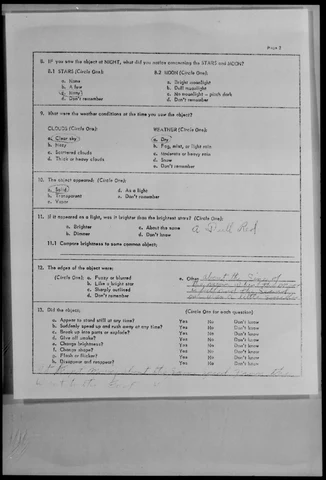 PAGE 2
8. IF you saw the object at NIGHT, what did you notice concerning the STARS and MOON?
8.1 STARS (Circle One): 8.2 MOON (Circle One):
a. None a. Bright moonlight
b. A few b. Dull moonlight
c. Many c. No moonlight — pitch dark
d. Don't remember d. Don't remember
9. What were the weather conditions at the time you saw the object?
CLOUDS (Circle One): WEATHER (Circle One):
a. Clear sky a. Dry
b. Hazy b. Fog, mist, or light rain
c. Scattered clouds c. Moderate or heavy rain
d. Thick or heavy clouds d. Snow
e. Don't remember
10. The object appeared: (Circle One):
a. Solid d. As a light
b. Transparent e. Don't remember
c. Vapor
11. If it appeared as a light, was it brighter than the brightest stars? (Circle One):
a. Brighter c. About the same a Dull Red
b. Dimmer d. Don't know
11.1 Compare brightness to some common object:
12. The edges of the object were:
(Circle One): a. Fuzzy or blurred e. Other about the
b. Like a bright star
c. Sharply outlined
d. Don't remember
13. Did the object: (Circle One for each question)
a. Appear to stand still at any time? Yes No Don't know
b. Suddenly speed up and rush away at any time? Yes No Don't know
c. Break up into parts or explode? Yes No Don't know
d. Give off smoke? Yes No Don't know
e. Change brightness? Yes No Don't know
f. Change shape? Yes No Don't know
g. Flash or flicker? Yes No Don't know
h. Disappear and reappear? Yes No Don't know